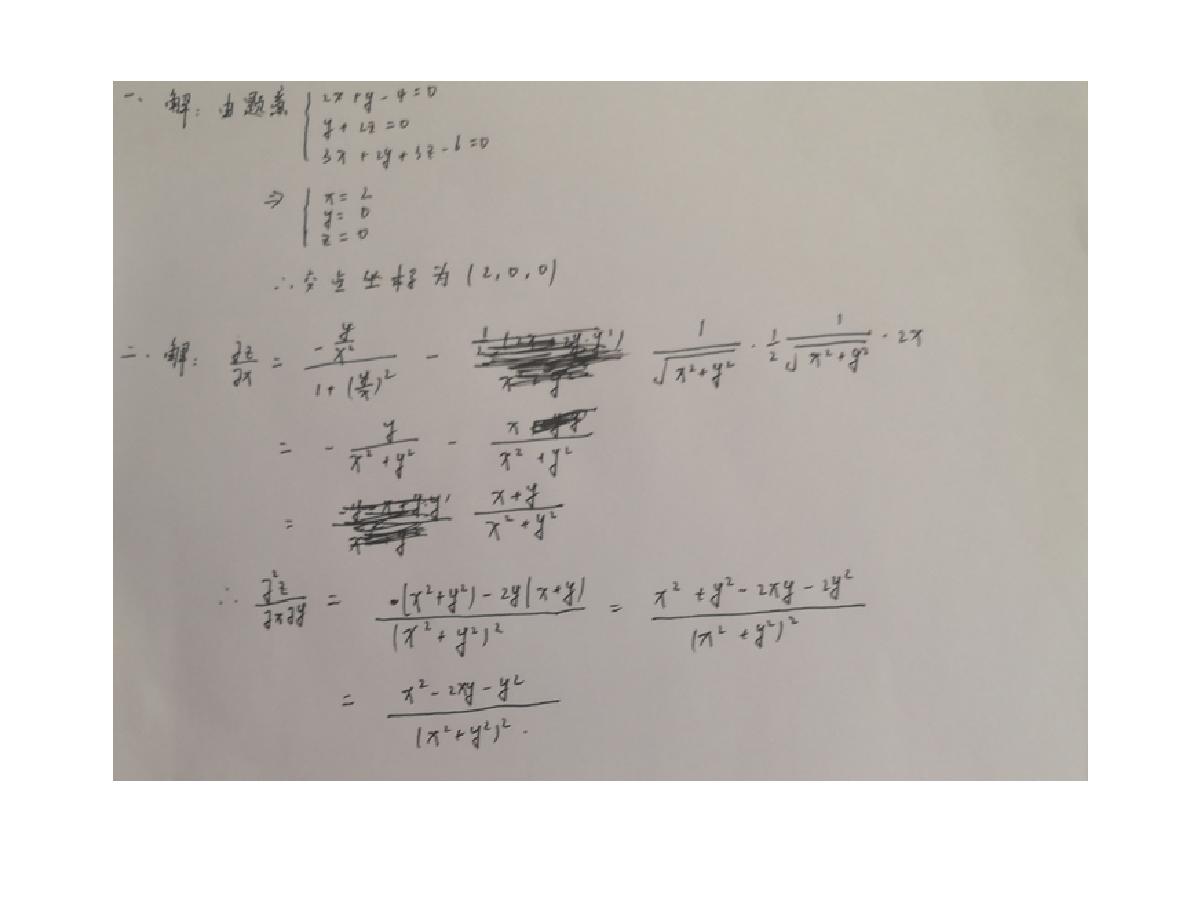 一、解：由题意 { 2x+y-4=0
y+2z=0
3x+2y+3z-6=0
⇒ { x=2
y=0
z=0
∴交点坐标为(2,0,0)
二、解：∂z/∂x = (-y/x²)/(1+(y/x)²) - 1/√(x²+y²) · 1/2 · 1/√(x²+y²) · 2x
= - y/(x²+y²) - x/(x²+y²)
= (x+y)/(x²+y²)
∴ ∂²z/∂x∂y = ((x²+y²)-2y(x+y))/(x²+y²)² = (x²+y²-2xy-2y²)/(x²+y²)²
= (x²-2xy-y²)/(x²+y²)².